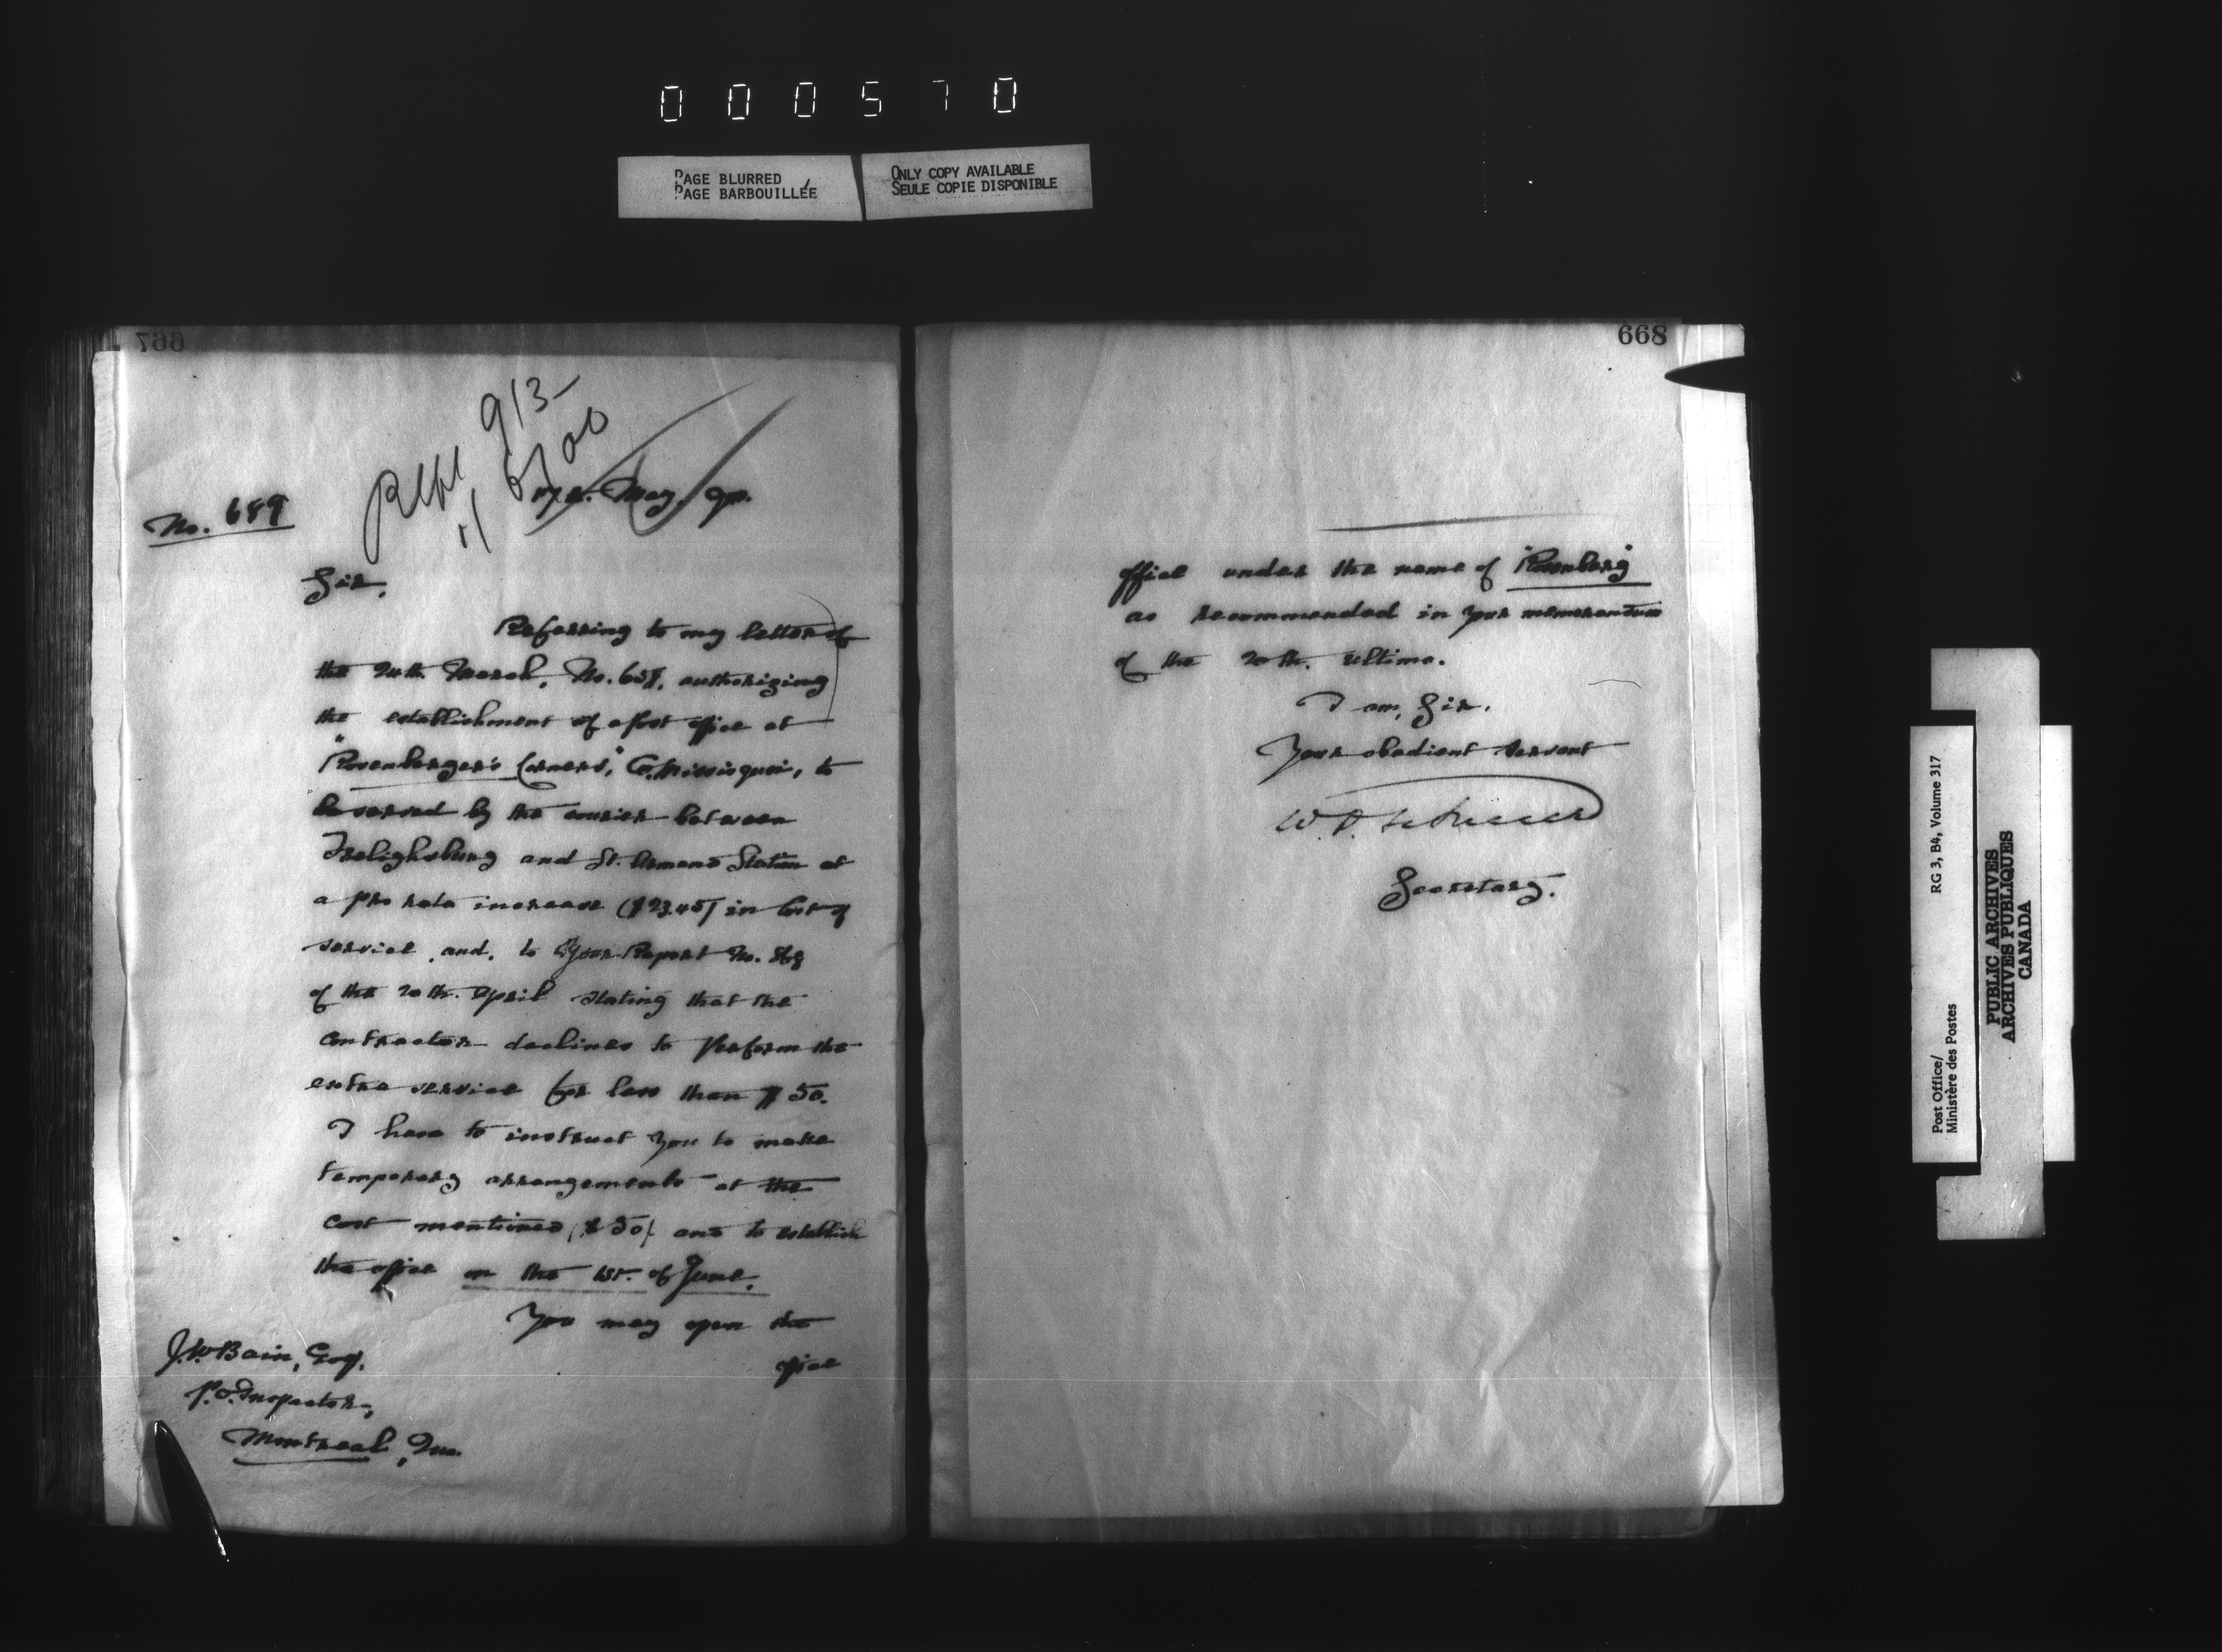 000570
PAGE BLURRED
PAGE BARBOUILLÉE
ONLY COPY AVAILABLE
SEULE COPIE DISPONIBLE
667
913
6/00
May, 90.
No. 689
Sir,
Referring to my letter of
the 24th March, No. 657, authorizing
the establishment of a post office at
"Rosenberger's Corners," Co. Missisquoi, to
be served by the courier between
Frelighsburg and St. Armand Station at
a pro rata increase ($23.45) in cost of
service, and, to your Report No.
of the 20th. April stating that the
contractor declines to perform the
extra service for less than $50.
I have to instruct you to make
temporary arrangements at the
cost mentioned ($50) and to establish
the office on the 1st. of June.
You may open the
office
J.W. Bain, Esq.
P.O. Inspector,
Montreal, Que.
668
office under the name of "Rosenberg"
as recommended in your memorandum
of the 20th. ultimo.
I am, Sir,
Your obedient servant
Secretary.
Post Office/
Ministère des Postes
RG 3, B4, Volume 317
PUBLIC ARCHIVES
ARCHIVES PUBLIQUES
CANADA